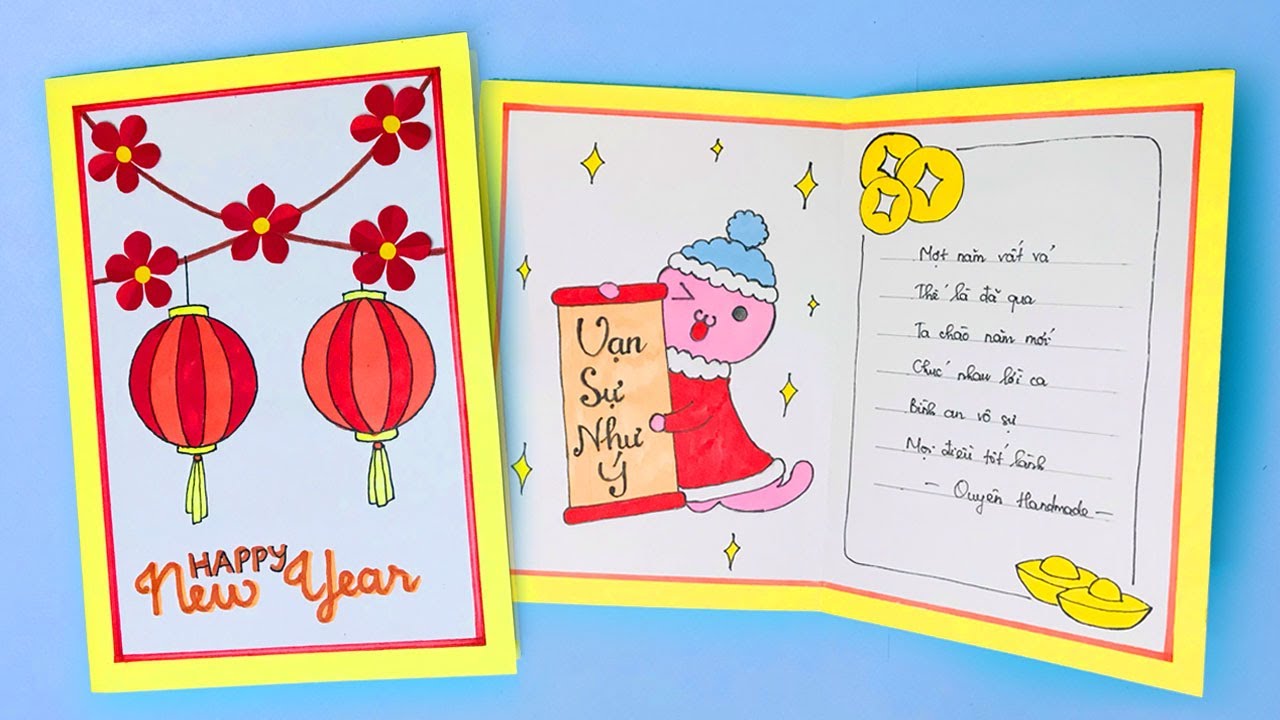 HAPPY
New Year
Vạn
Sự
Như
Ý
Một năm vất vả
Thế là đã qua
Ta chào năm mới
Chúc nhau lời ca
Bình an vô sự
Mọi điều tốt lành
- Quyên Handmade -